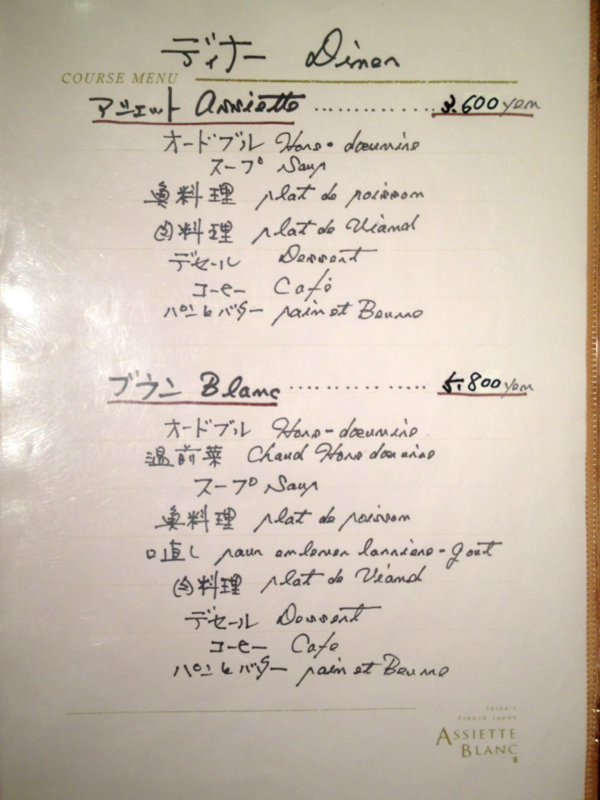 ディナー Diner
COURSE MENU
アシェット Assiette ............. 3.600 yen
オードブル Hors-doeuvre
スープ Soup
魚料理 plat de poisson
肉料理 plat de Viand
デセール Dessert
コーヒー Café
パンとバター pain et Beurre
ブラン Blanc ............. 5.800 yen
オードブル Hors-doeuvre
温前菜 Chaud Hors doeuvre
スープ Soup
魚料理 plat de poisson
口直し pour enlever l'arrière-gout
肉料理 plat de Viand
デセール Dessert
コーヒー Cafe
パンとバター pain et Beurre
French Japon
ASSIETTE
BLANC